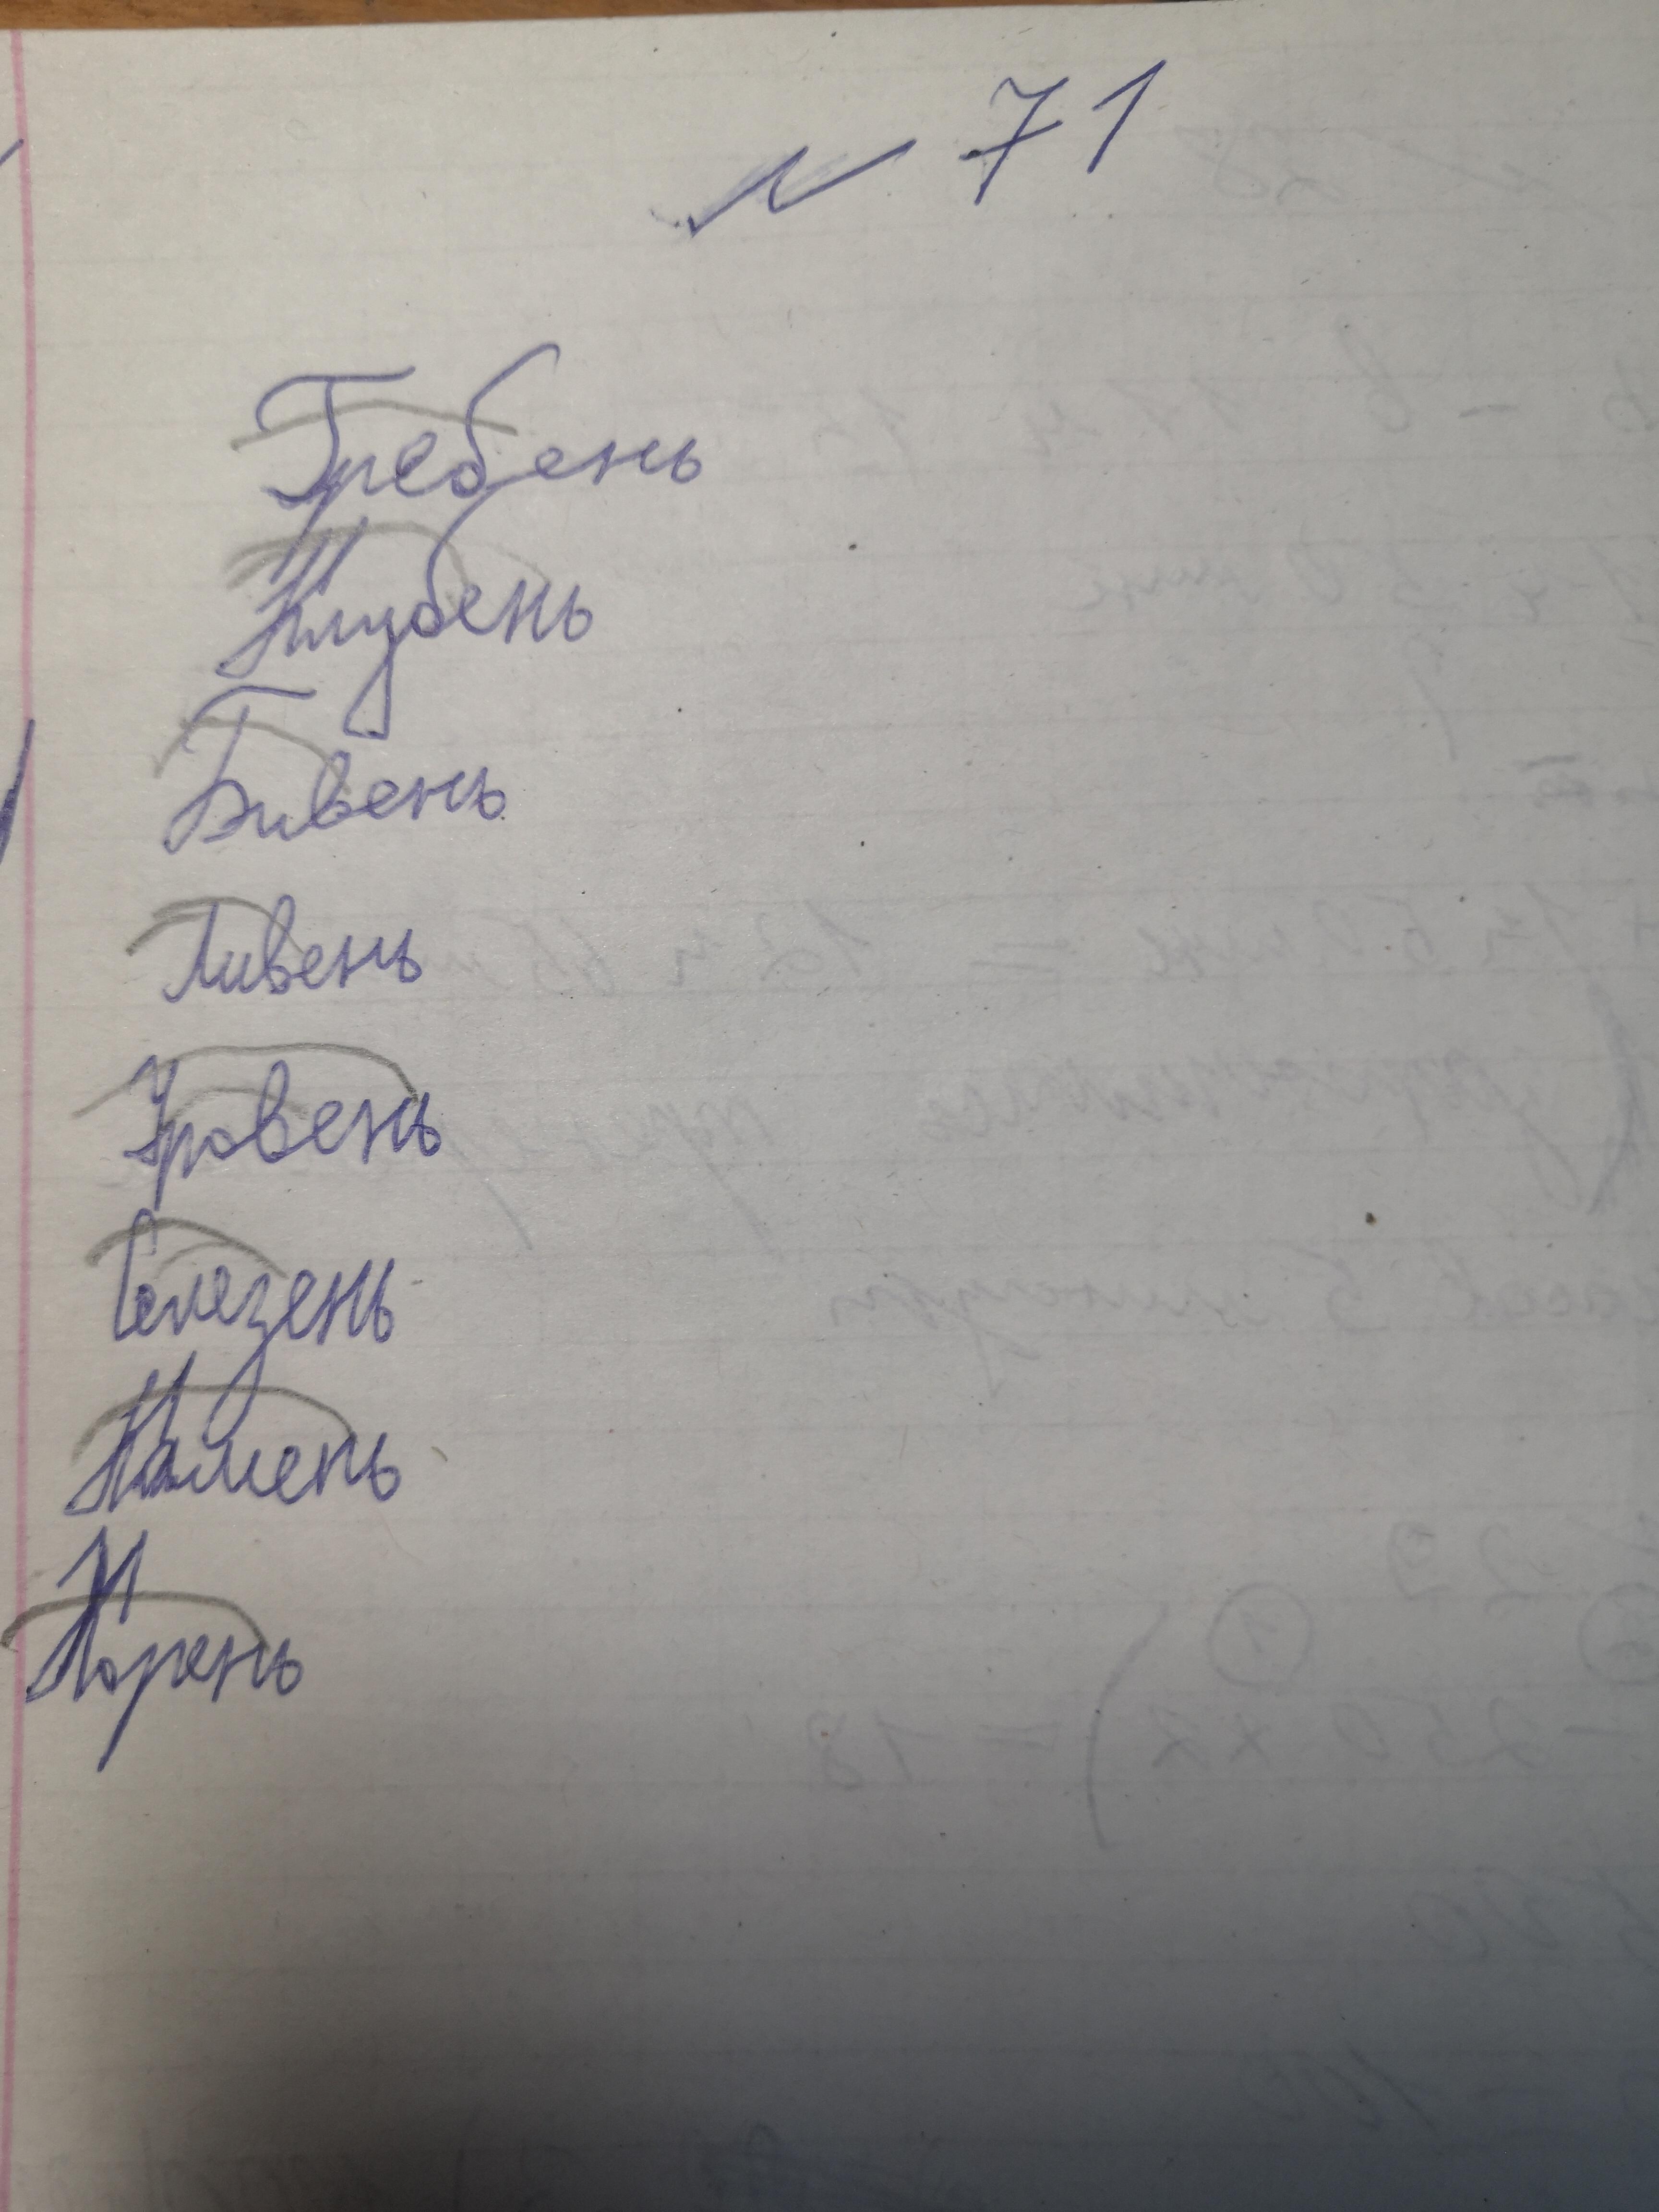 № 71
Гребень
Клубень
Бивень
Ливень
Уровень
Селезень
Камень
Корень